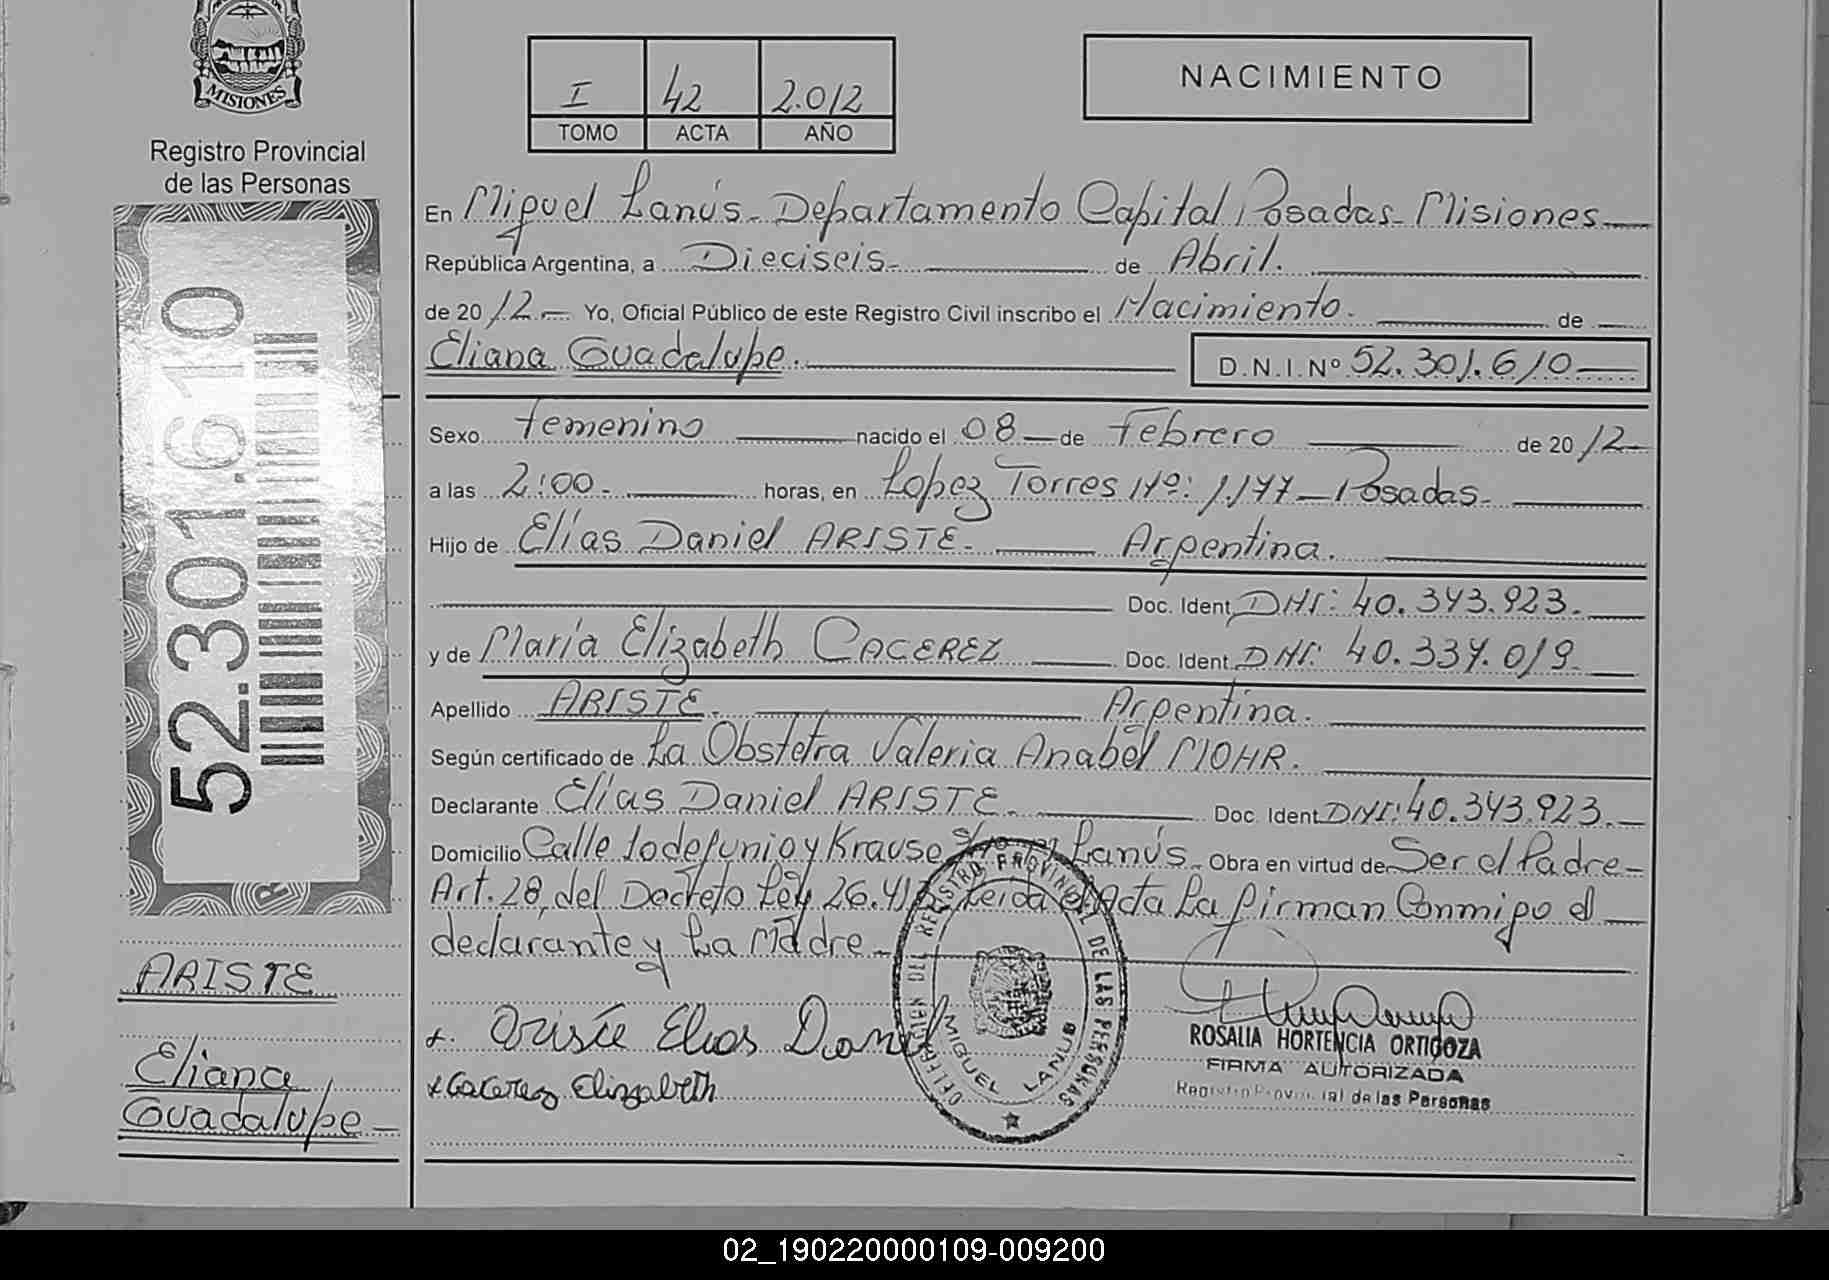 MISIONES
Registro Provincial
de las Personas
52.301.610
ARISTE
Eliana
Guadalupe
I 42 2.012
TOMO ACTA AÑO
NACIMIENTO
En Miguel Lanús - Departamento Capital Posadas - Misiones
República Argentina, a Dieciseis - de Abril.
de 2012 - Yo, Oficial Público de este Registro Civil inscribo el Nacimiento. de
Eliana Guadalupe. D.N.I.Nº 52.301.610
Sexo femenino nacido el 08 de Febrero de 2012
a las 2:00 - horas, en Lopez Torres Nº: 1.177 - Posadas -
Hijo de Elías Daniel ARISTE - Argentina.
Doc. Ident. DNI: 40.343.923.
y de María Elizabeth CACEREZ Doc. Ident. DNI: 40.337.019
Apellido ARISTE. Argentina.
Según certificado de La Obstetra Valeria Anabel MOHR.
Declarante Elías Daniel ARISTE. Doc. Ident. DNI: 40.343.923.
Domicilio Calle y Krause Lanús - Obra en virtud de Ser el Padre -
Art. 28, del Decreto Ley 26.413 Leida el Acta La firman Conmigo el
declarante y La Madre -
x. Ariste Elias Daniel
x Cacerez Elizabeth
DELEGACION DEL REGISTRO PROVINCIAL DE LAS PERSONAS
MIGUEL LANUS
ROSALIA HORTENCIA ORTIGOZA
FIRMA AUTORIZADA
Registro Provincial de las Personas
02_190220000109-009200